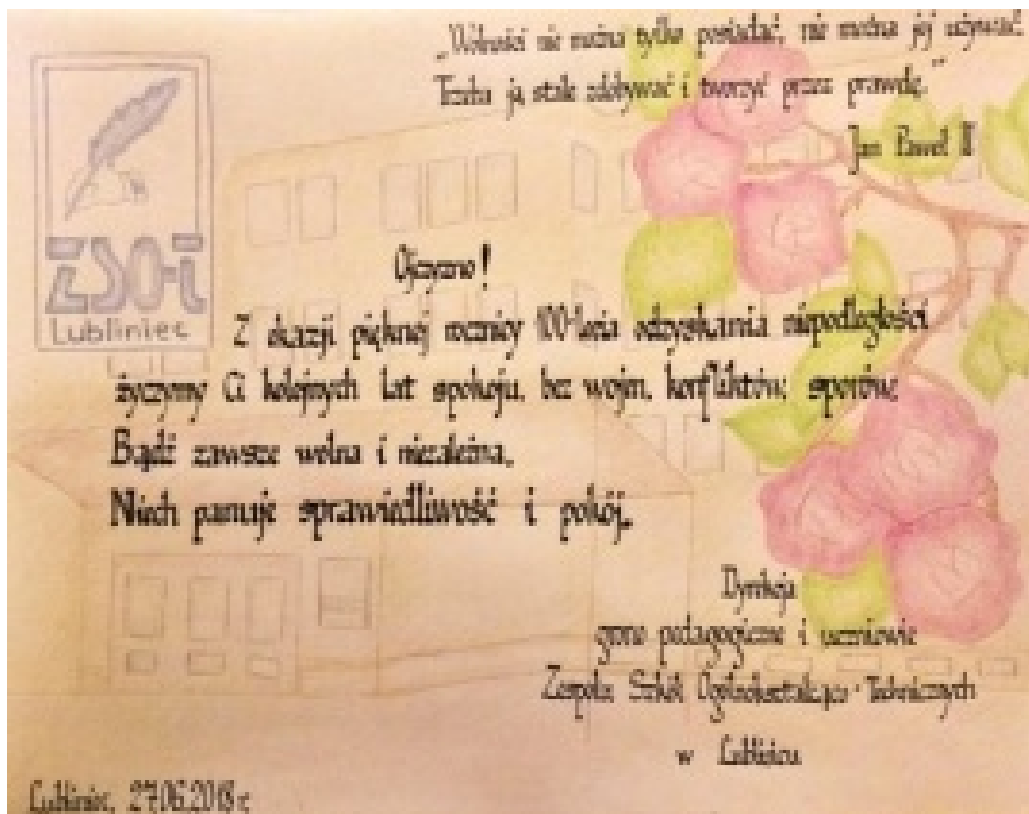 „Wolności nie można tylko posiadać, nie można jej używać.
Trzeba ją stale zdobywać i tworzyć przez prawdę."
Jan Paweł II
ZSO-T
Lubliniec
Ojczyzno!
Z okazji pięknej rocznicy 100-lecia odzyskania niepodległości
życzymy Ci kolejnych lat spokoju, bez wojn, konfliktów, sporów.
Bądź zawsze wolna i niezależna.
Niech panuje sprawiedliwość i pokój.
Dyrekcja
grono pedagogiczne i uczniowie
Zespołu Szkół Ogólnokształcąco-Technicznych
w Lublińcu
Lubliniec, 27.06.2018 r.